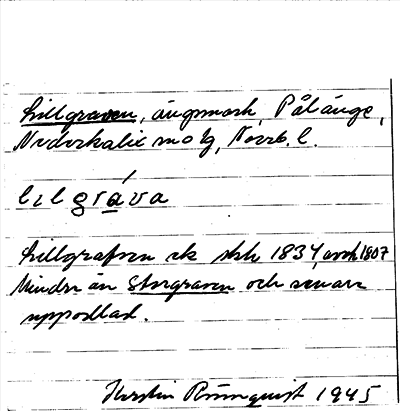 Lillgraven, ängsmark, Pålänge,
Nederkalix sn o tg, Norrb. l.
lìlgráva
Lillgrafven sk stk 1834, avvk 1807
Mindre än Storgraven och senare
uppodlad.
Kerstin Rönnquist 1945